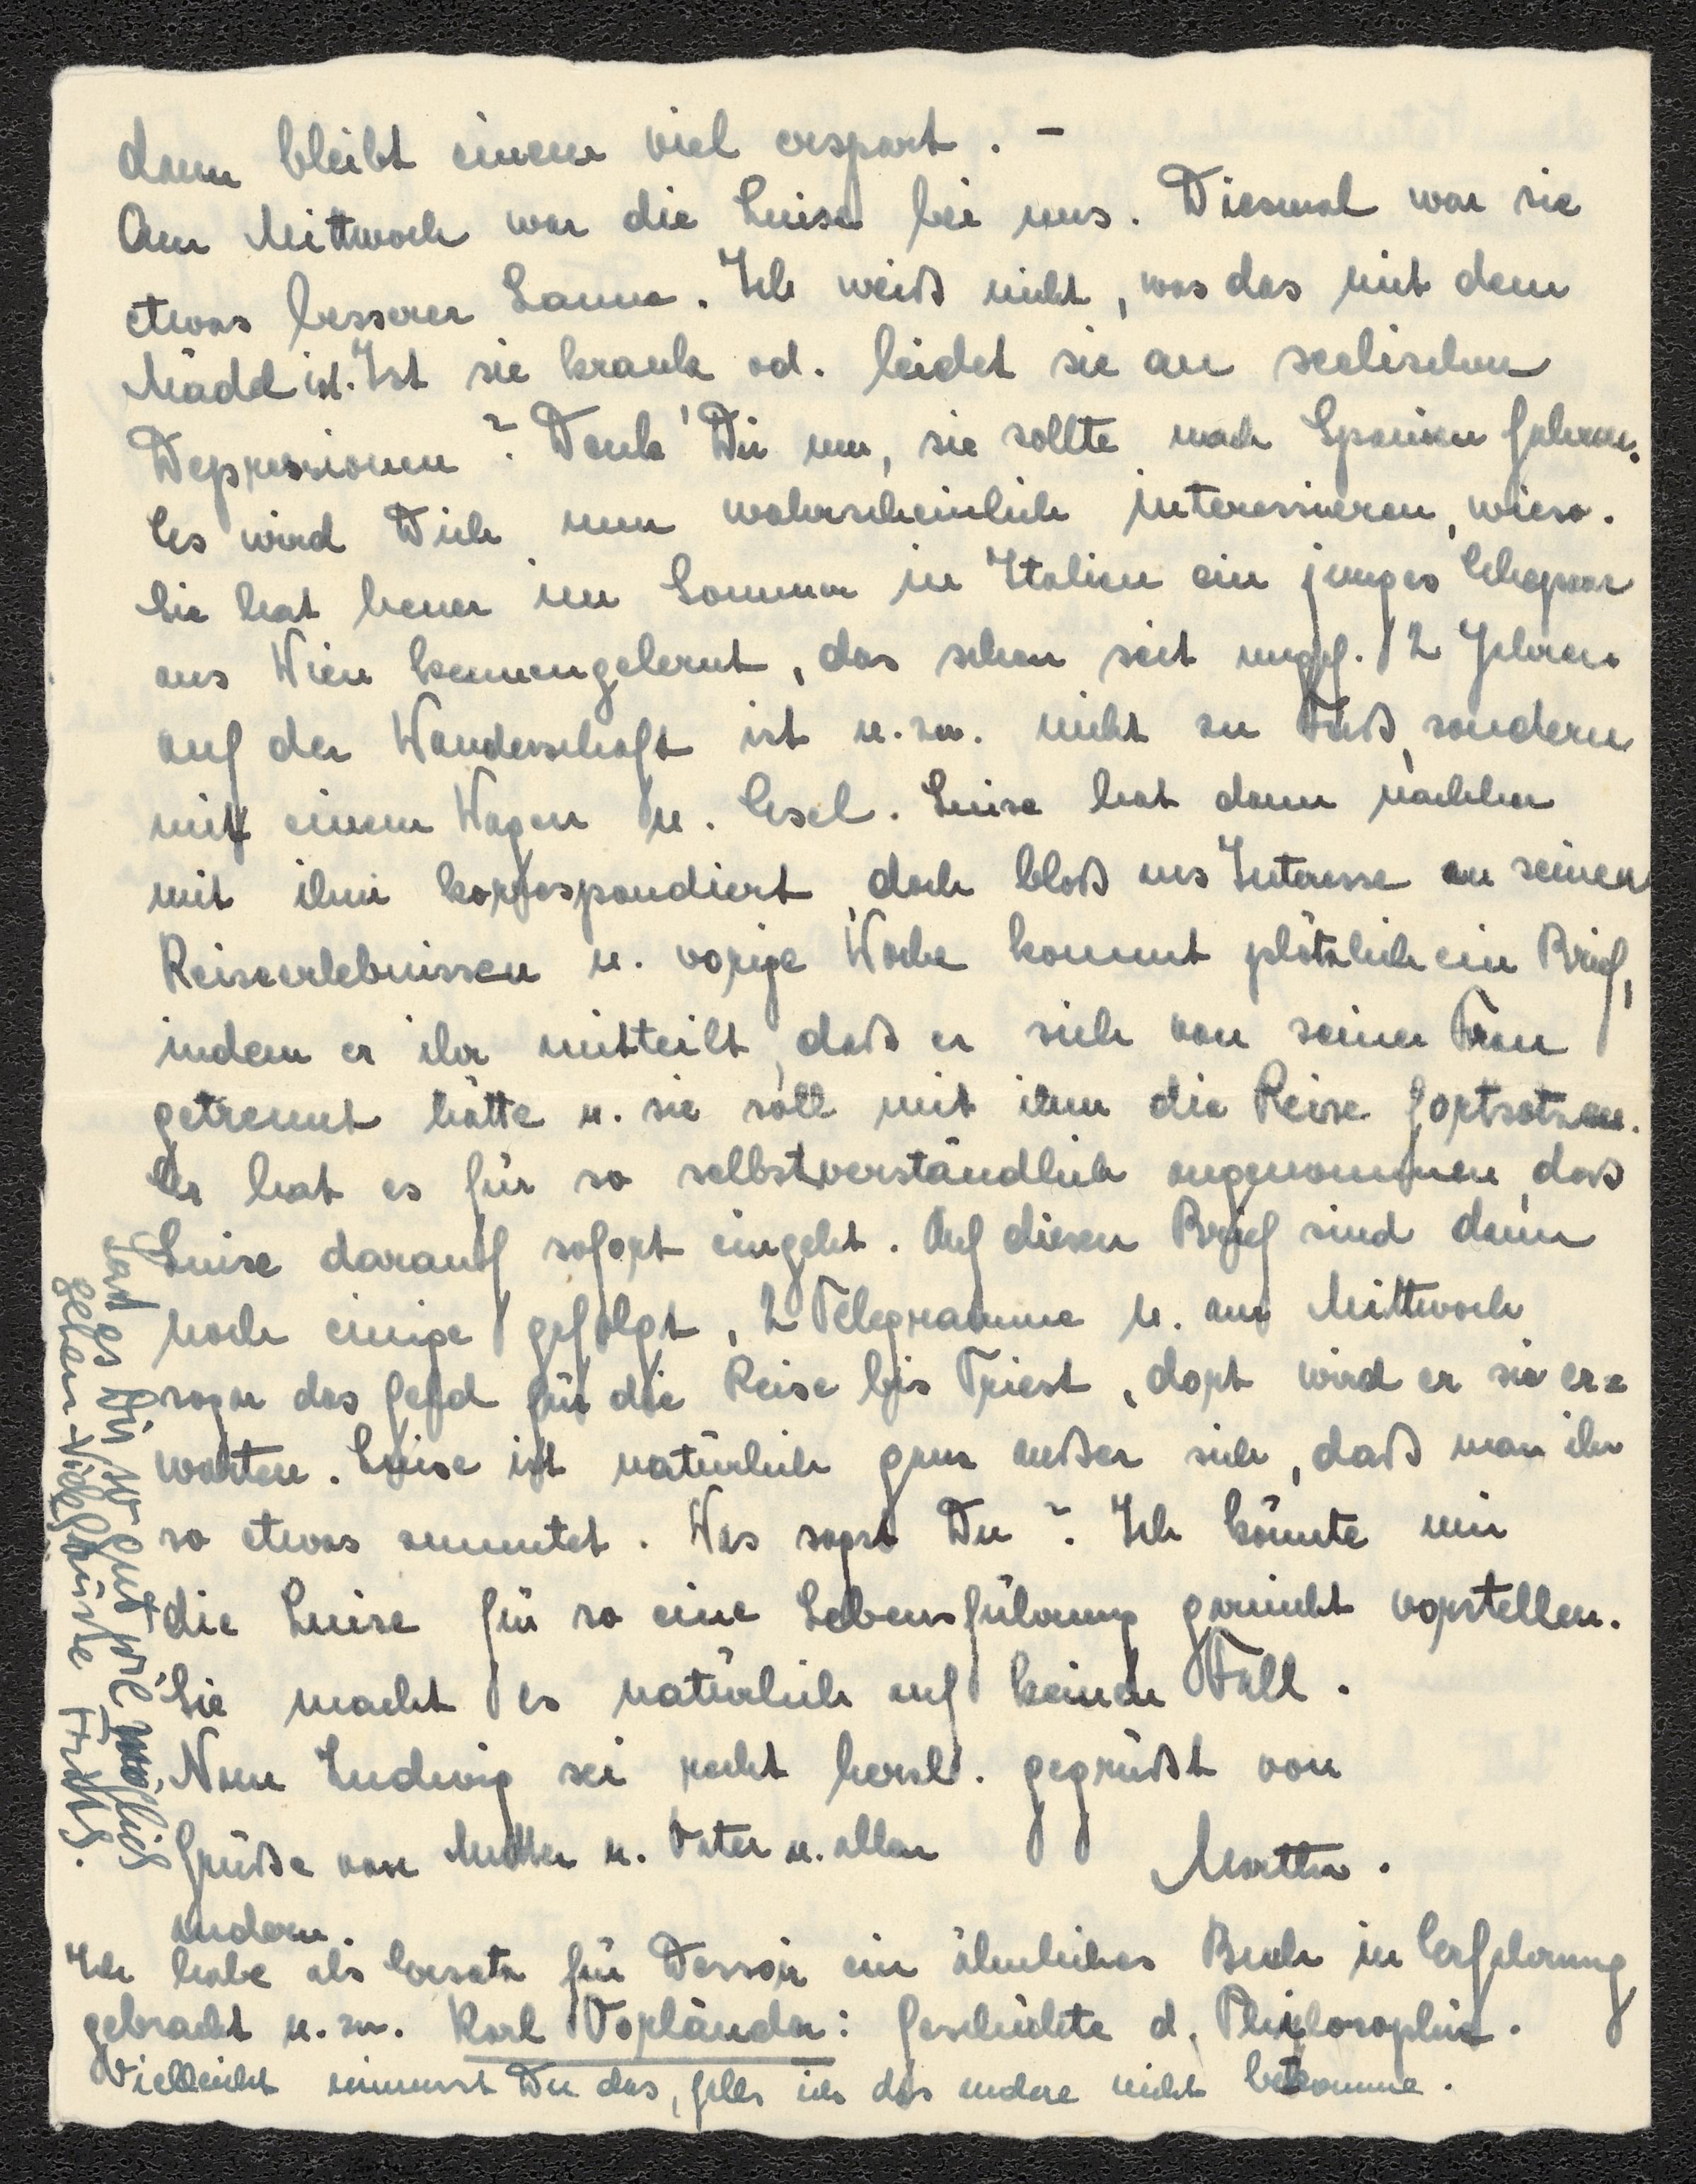 dann bleibt einem viel erspart. –
Am Mittwoch war die Luise bei uns. Diesmal war sie
etwas besserer Laune. Ich weiß nicht, was das mit dem
Mädel ist. Ist sie krank od. leidet sie an seelischen
Depressionen? Denk' Dir nur, sie sollte nach Spanien fahren.
Es wird Dich nun wahrscheinlich interessieren, wieso.
Sie hat heuer im Sommer in Italien ein junges Ehepaar
aus Wien kennengelernt, das schon seit ungef. 2 Jahren
auf der Wanderschaft ist u. zw. nicht zu Fuß, sondern
mit einem Wagen u. Esel. Luise hat dann nachher
mit ihm korrespondiert, doch bloß aus Interesse an seinen
Reiseerlebnissen u. vorige Woche kommt plötzlich ein Brief,
indem er ihr mitteilt, daß er sich von seiner Frau
getrennt hätte u. sie soll mit ihm die Reise fortsetzen.
Er hat es für so selbstverständlich angenommen, daß
Luise darauf sofort eingeht. Auf diesen Brief sind dann
noch einige gefolgt, 2 Telegramme u. am Mittwoch
sogar das Geld für die Reise bis Triest, dort wird er sie er=
warten. Luise ist natürlich ganz außer sich, daß man ihr
so etwas zumutet. Was sagst Du? Ich könnte mir
die Luise für so eine Lebensführung garnicht vorstellen.
Sie macht es natürlich auf keinen Fall.
Nun Ludwig sei recht herzl. gegrüßt von
Martha.
Grüße von Mutter u. Vater u. allen
andern.
Ich habe als Ersatz für Dessoir ein ähnliches Buch in Erfahrung
gebracht u. zw. Karl Vorländer: Geschichte d. Philosophie.
Vielleicht nimmst Du das, falls ich das andere nicht bekomme.
Laß es Dir so gut wie möglich
gehen – Viele Grüße Fritz.